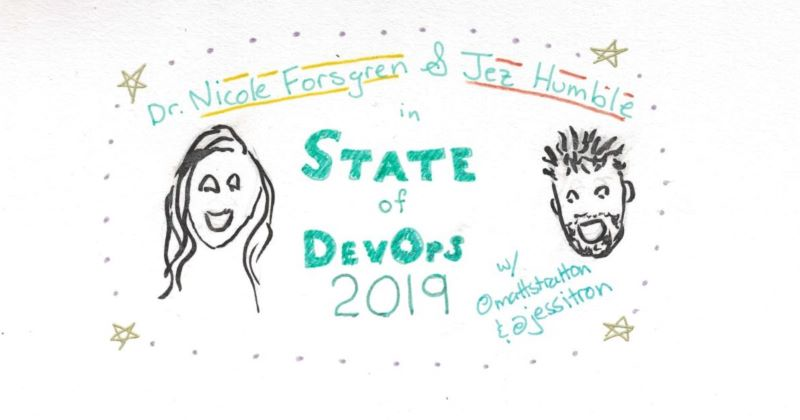 Dr. Nicole Forsgren & Jez Humble
in
STATE
of
DEVOPS
2019
w/
@mattstratton
& @jessitron